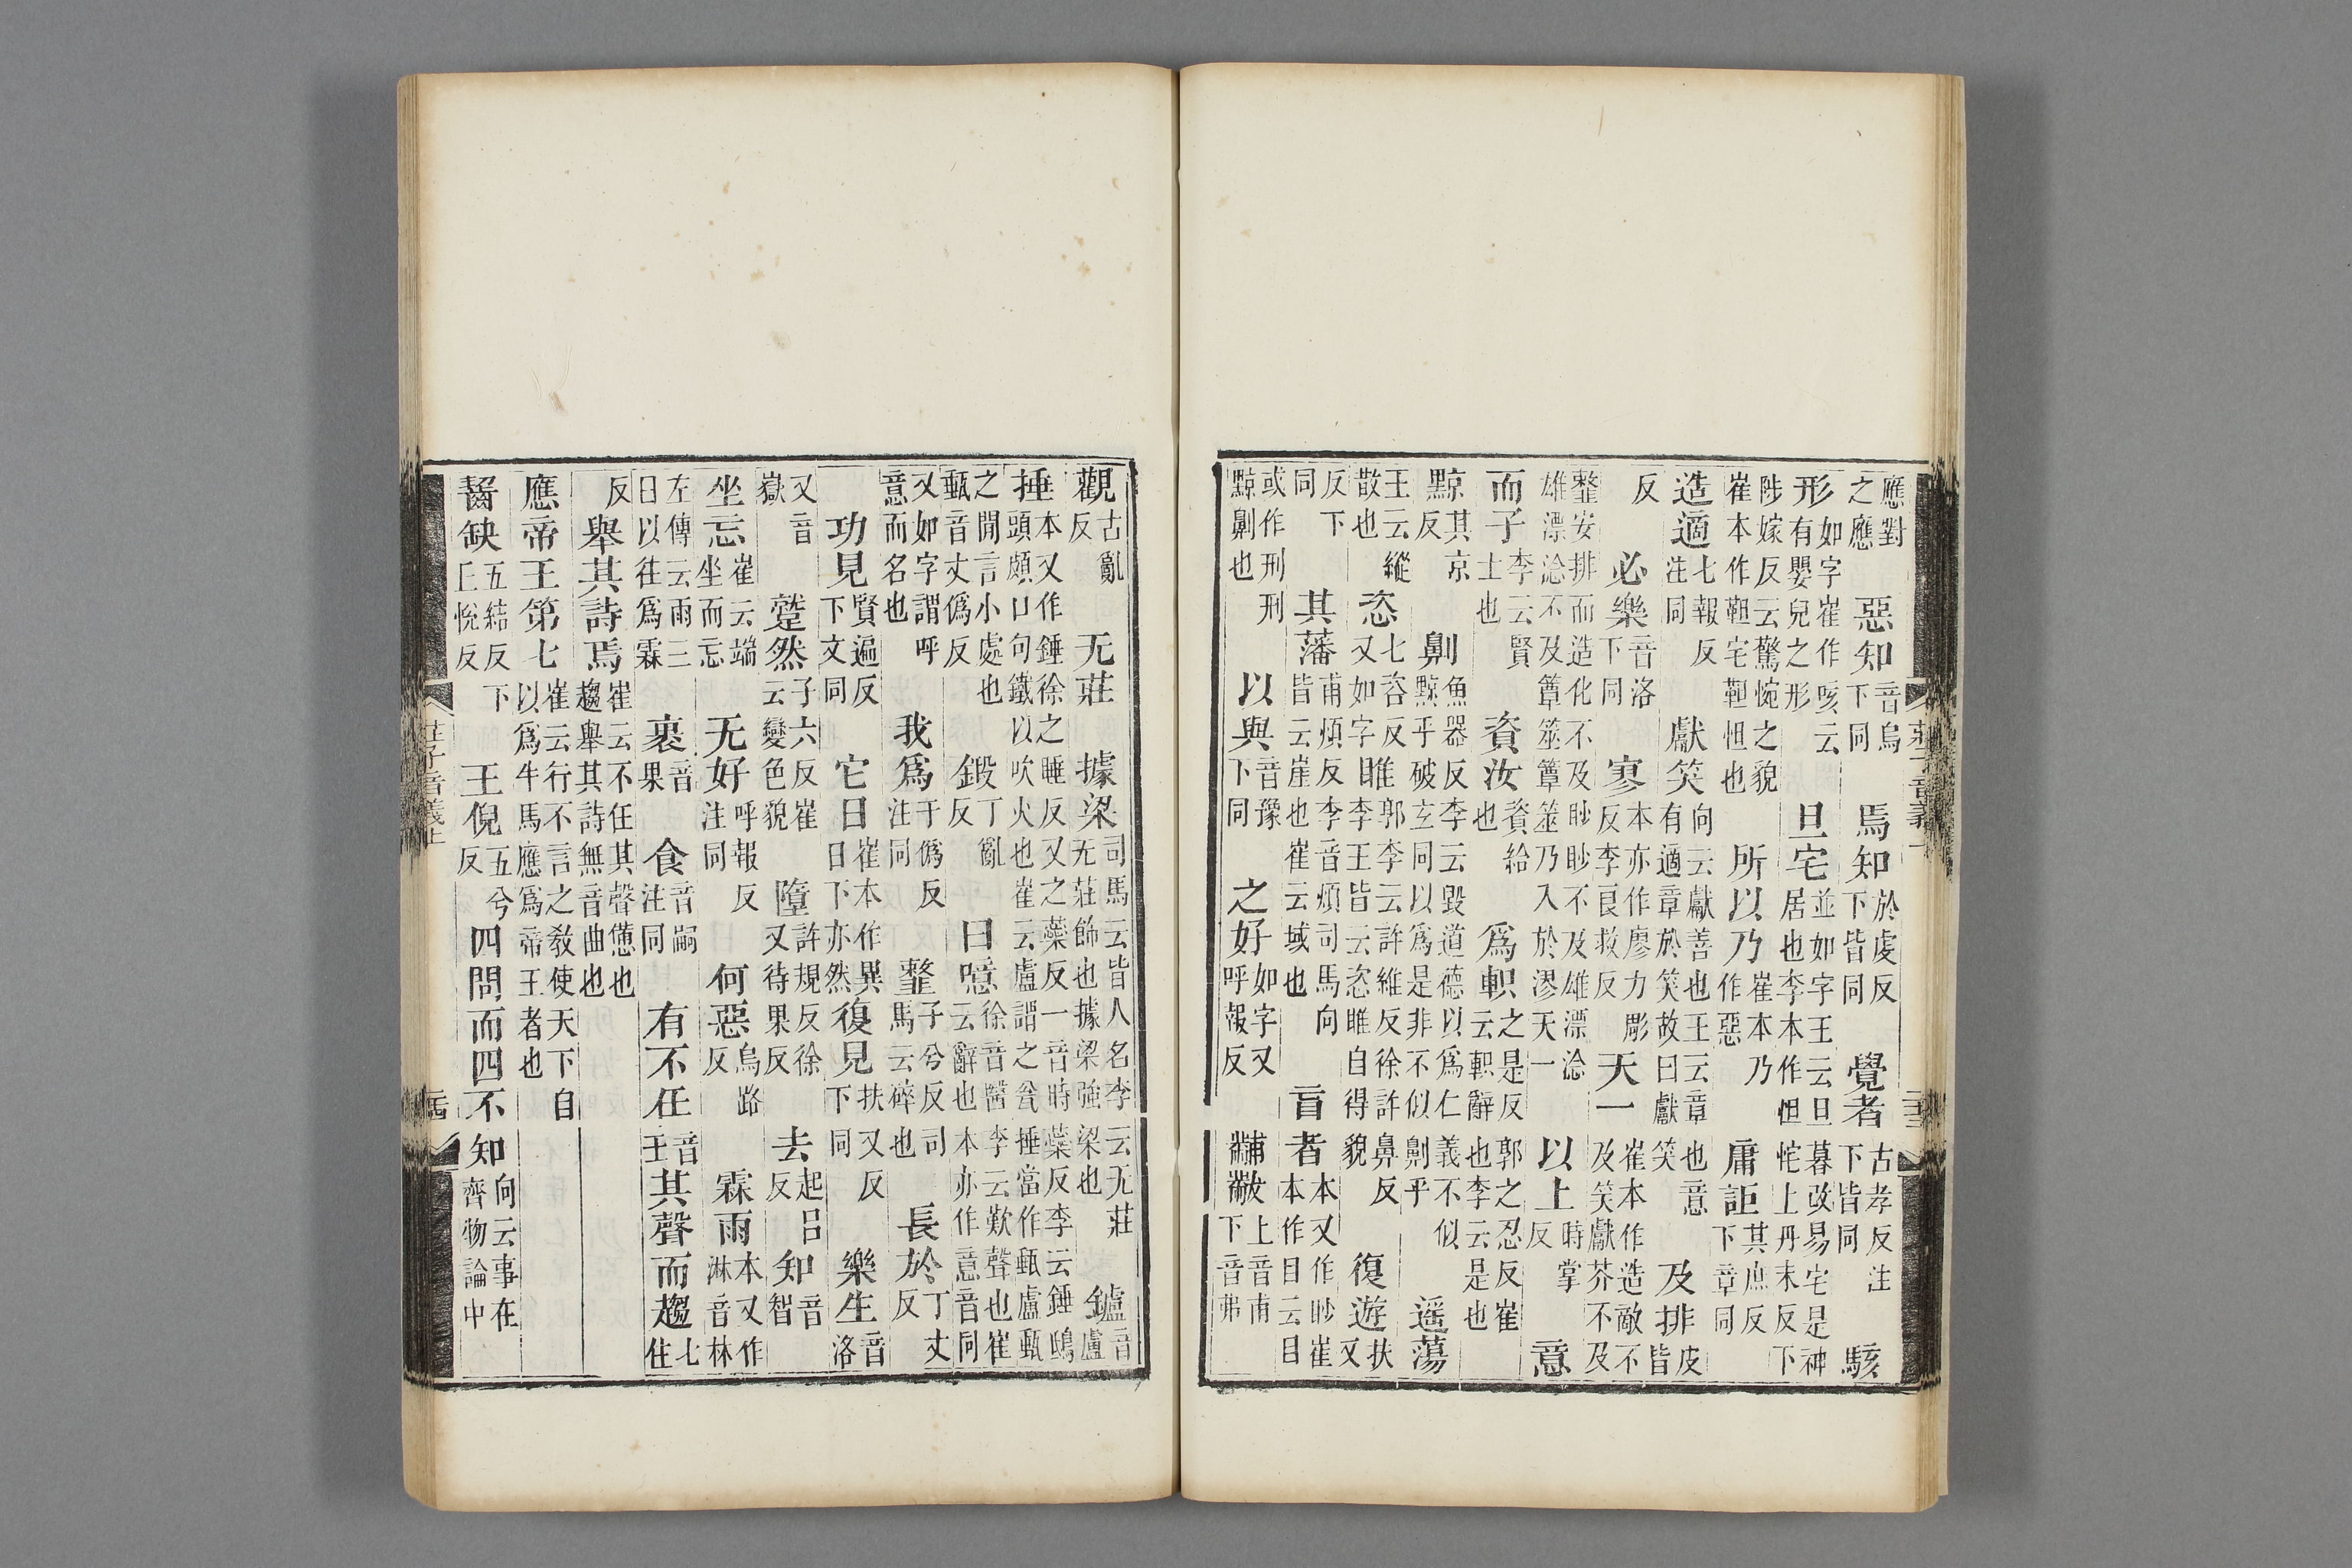 應對之應惡知音烏下同焉知於虔反下皆同覺者古孝反注下皆同駭
形如字崔作咳云有嬰兒之形旦宅並如字王云旦暮改易宅是神居也李本作怛㤞上丹末反下
陟嫁反云驚惋之貌崔本作靼宅靼怛也所以乃崔本乃作惡庸詎其庶反下章同
造適七報反注同獻笑向云獻善也王云章也意有適章於笑故曰獻笑及排皮皆
反必樂音洛下同寥本亦作廖力彫反李良救反天一崔本作造敵不及笑獻芥不及
䪠安排而造化不及眇眇不及雄漂淰雄漂淰不及簟筮簟筮乃入於漻天一以上時掌反意
而子李云賢士也資汝資給也爲軹之是反郭之忍反崔云軹辭也李云是也
黥其京反劓魚器反李云毀道德以爲仁義不似黥乎破玄同以爲是非不似劓乎遥蕩
王云縱散也恣七咨反又如字睢郭李云許維反徐許鼻反李王皆云恣睢自得貌復遊扶又
反下同其藩甫煩反李音煩司馬向皆云崖也崔云域也盲者本又作眇崔本作目云目
或作刑刑黥劓也以與音豫下同之好如字又呼報反黼黻上音甫下音弗
莊子音義上
觀古亂反无莊據梁司馬云皆人名李云无莊无莊飾也據梁強梁也鑪音盧
捶本又作錘徐之睡反又之蘂反一音時蘂反李云錘鴟頭頗口句鐵以吹火也崔云盧謂之瓮捶當作甀盧甀
之閒言小處也甀音丈僞反鍛丁亂反曰噫徐音醫李云歎聲也崔云辭也本亦作意音同
又如字謂呼意而名也我爲于僞反注同䪠子兮反司馬云碎也長於丁丈反
功見賢遍反下文同它日崔本作異日下亦然復見扶又反下同樂生音洛
又音嶽蹵然子六反崔云變色貌墮許規反徐又待果反去起呂反知音智
坐忘崔云端坐而忘无好呼報反注同何惡烏路反霖雨本又作淋音林
左傳云雨三日以往爲霖裹音果食音嗣注同有不任音壬其聲而趨七住
反舉其詩焉崔云不任其聲憊也趨舉其詩無音曲也
應帝王第七崔云行不言之敎使天下自以爲牛馬應爲帝王者也
齧缺五結反下丘悅反王倪五兮反四問而四不知向云事在齊物論中
莊子音義上